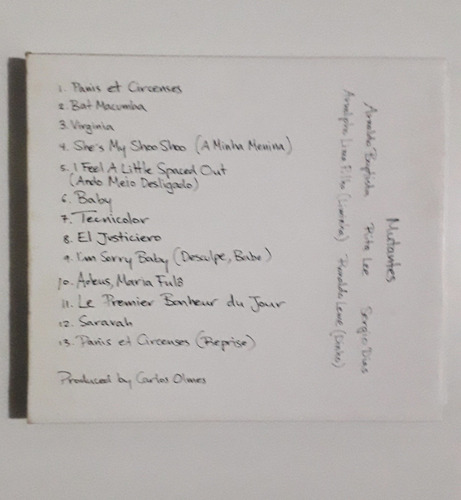 1. Panis et Circenses
2. Bat Macumba
3. Virginia
4. She's My Shoo Shoo (A Minha Menina)
5. I Feel A Little Spaced Out
(Ando Meio Desligado)
6. Baby
7. Tecnicolor
8. El Justiciero
9. I'm Sorry Baby (Desculpe, Babe)
10. Adeus, Maria Fulô
11. Le Premier Bonheur du Jour
12. Saravah
13. Panis et Circenses (Reprise)
Produced by Carlos Olms
Mutantes
Arnaldo Baptista Rita Lee Sergio Dias
Arnolpho Lima Filho (Liminha) Ronaldo Leme (Dinho)